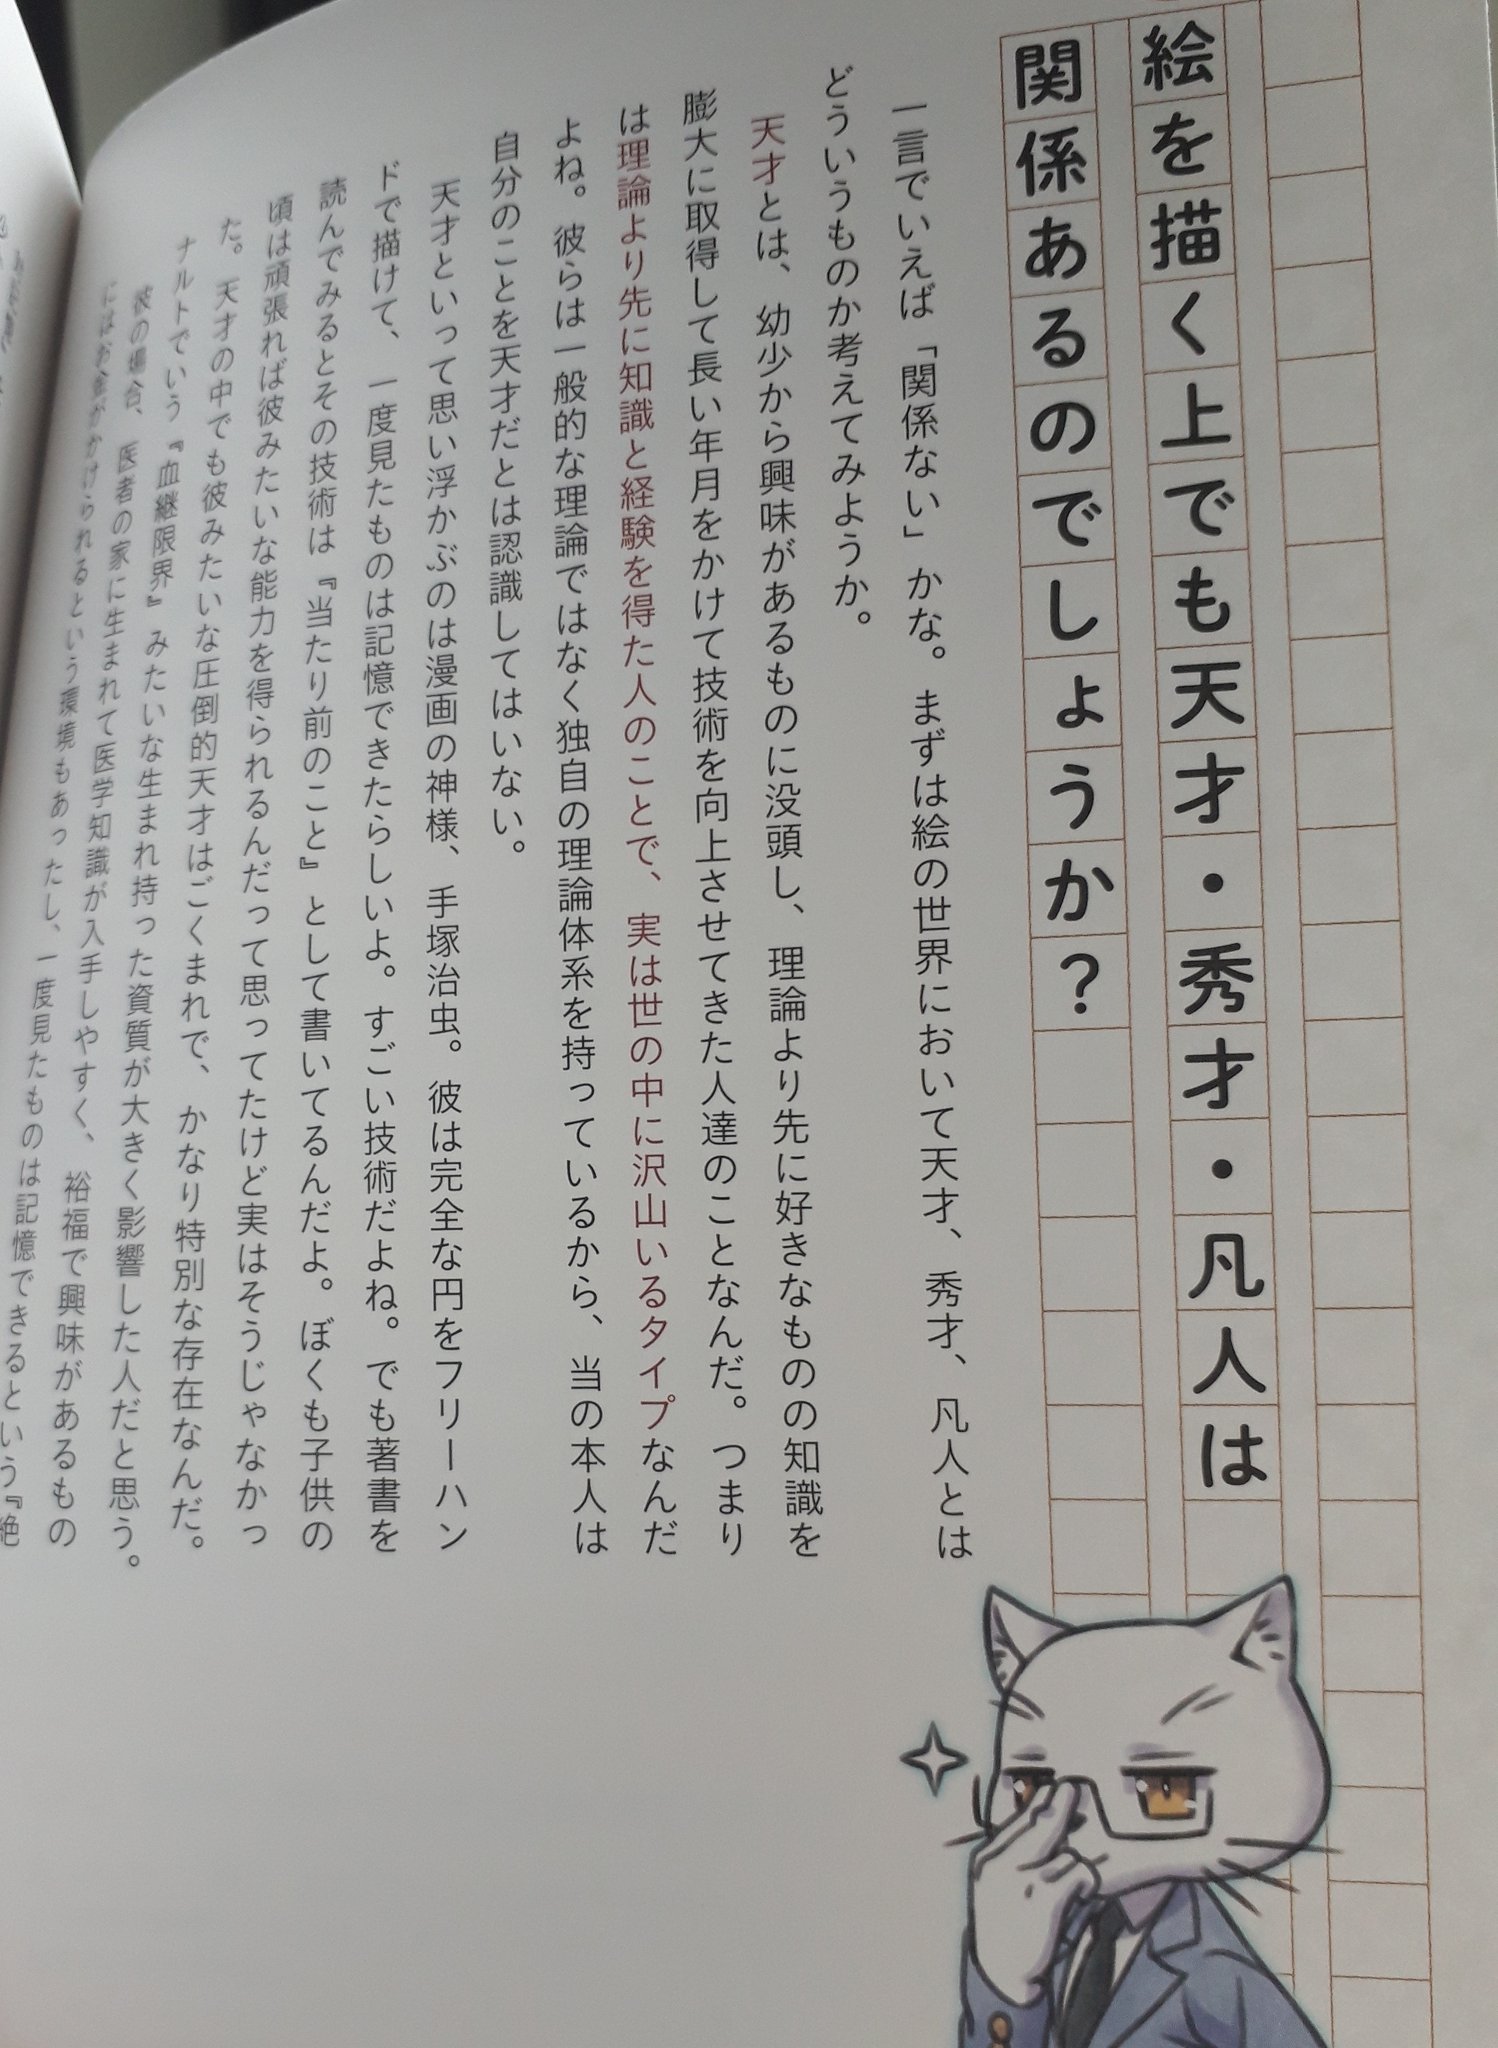 絵を描く上でも天才・秀才・凡人は
関係あるのでしょうか？
一言でいえば「関係ない」かな。まずは絵の世界において天才、秀才、凡人とは
どういうものか考えてみようか。
天才とは、幼少から興味があるものに没頭し、理論より先に好きなものの知識を
膨大に取得して長い年月をかけて技術を向上させてきた人達のことなんだ。つまり
は理論より先に知識と経験を得た人のことで、実は世の中に沢山いるタイプなんだ
よね。彼らは一般的な理論ではなく独自の理論体系を持っているから、当の本人は
自分のことを天才だとは認識してはいない。
天才といって思い浮かぶのは漫画の神様、手塚治虫。彼は完全な円をフリーハン
ドで描けて、一度見たものは記憶できたらしいよ。すごい技術だよね。でも著書を
読んでみるとその技術は『当たり前のこと』として書いてるんだよ。ぼくも子供の
頃は頑張れば彼みたいな能力を得られるんだって思ってたけど実はそうじゃなかっ
た。天才の中でも彼みたいな圧倒的天才はごくまれで、かなり特別な存在なんだ。
ナルトでいう『血継限界』みたいな生まれ持った資質が大きく影響した人だと思う。
彼の場合、医者の家に生まれて医学知識が入手しやすく、裕福で興味があるもの
にはお金がかけられるという環境もあったし、一度見たものは記憶できるという『絶